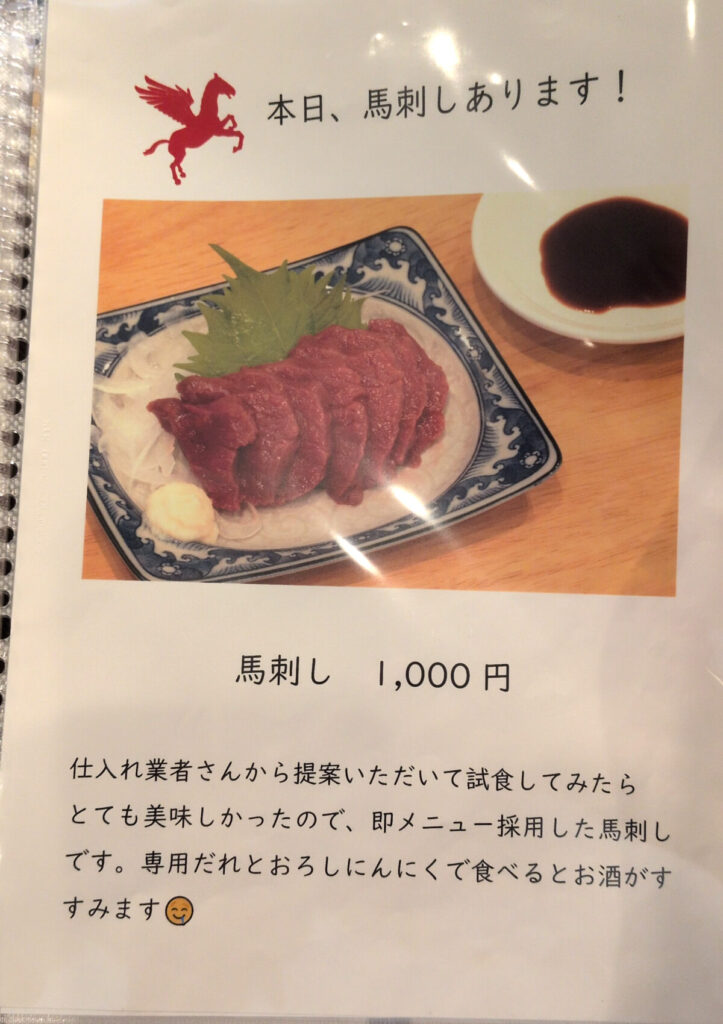 本日、馬刺しあります！
馬刺し　1,000 円
仕入れ業者さんから提案いただいて試食してみたら
とても美味しかったので、即メニュー採用した馬刺し
です。専用だれとおろしにんにくで食べるとお酒がす
すみます🤤